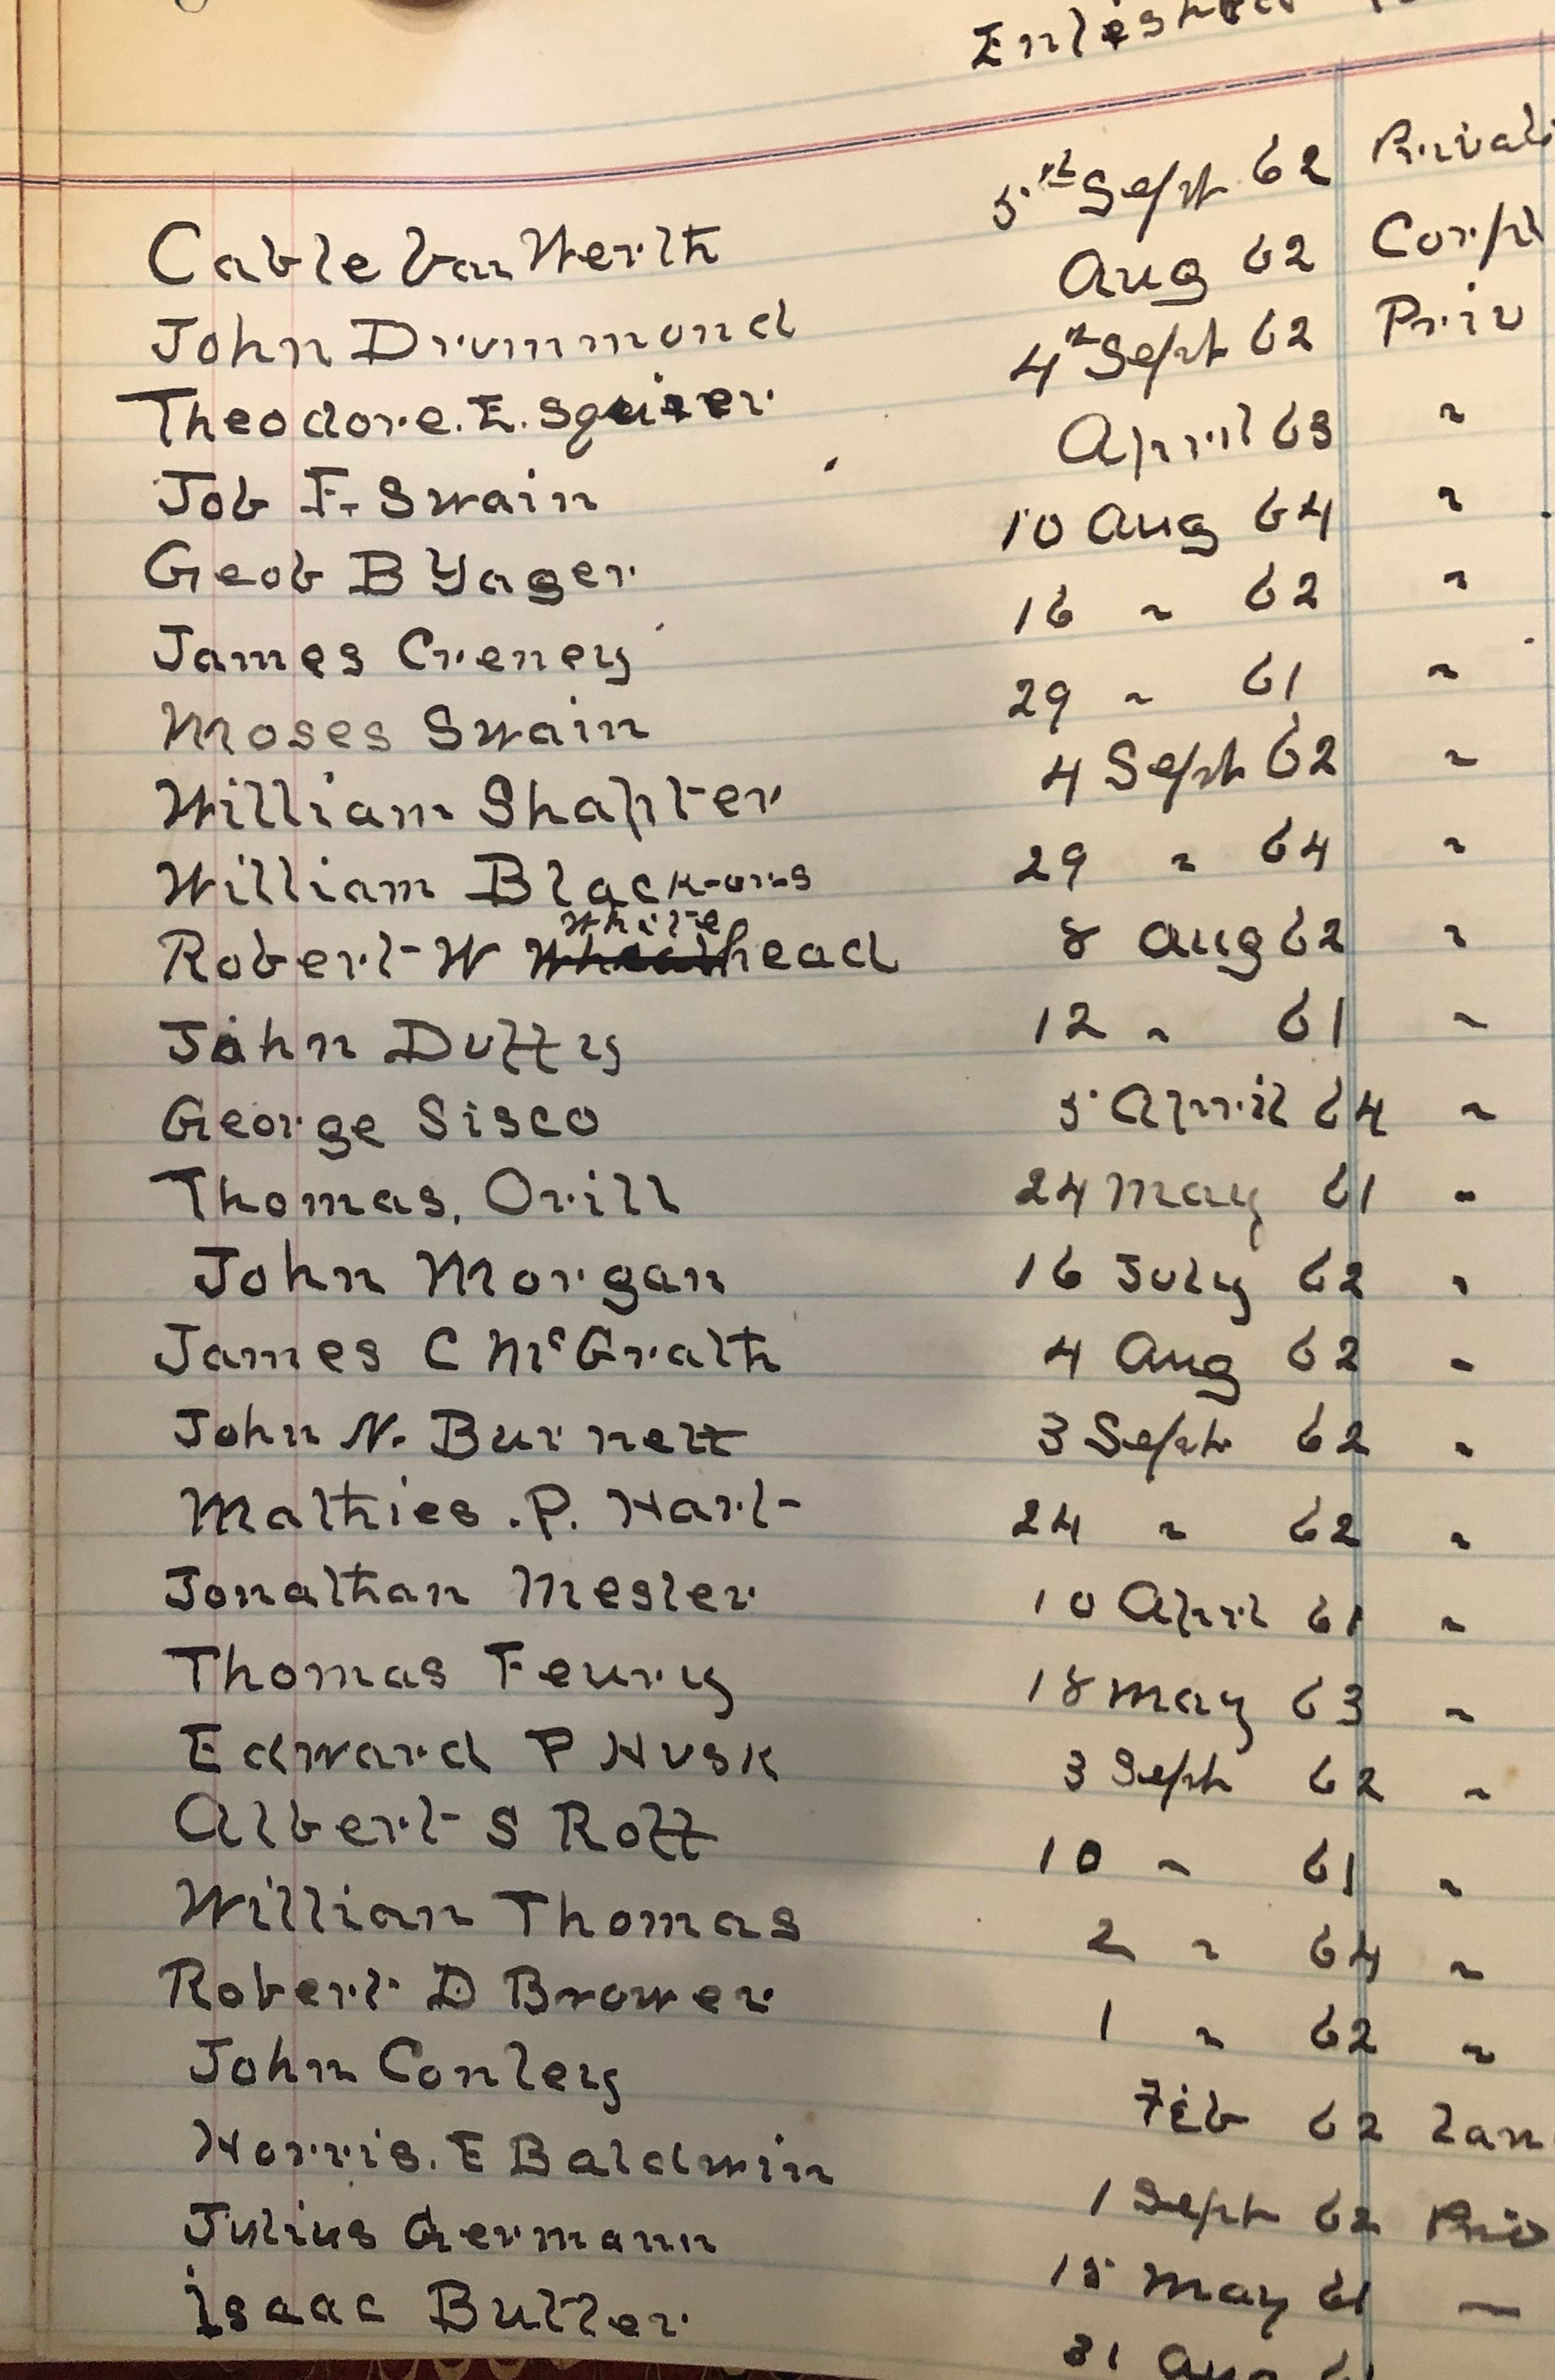 Enlested
Cable Van Werth 5th Sept 62 Privat
John Drummond Aug 62 Corpl
Theodore. E. Squier 4th Sept 62 Priv
Job F. Swain April 63 "
Geob B Yager 10 Aug 64 "
James Creney 16 " 62 "
Moses Swain 29 " 61 "
William Shapter 4 Sept 62 "
William 29 " 64 "
White
Robert W head 8 Aug 62 "
John Duffy 12 " 61 "
George Sisco 5 April 64 "
Thomas. Orill 24 May 61 "
John Morgan 16 July 62 "
James C McGrath 4 Aug 62 "
John N. Burnett 3 Sept 62 "
Mathies. P. Hart 24 " 62 "
Jonathan Mesler 10 April 61 "
Thomas Feury 18 May 63 "
Edward P Husk 3 Sept 62 "
Albert S Roff 10 " 61 "
William Thomas 2 " 64 "
Robert D Brower 1 " 62 "
John Conley Feb 62
Horris. E Baldwin 1 Sept 62 Priv
Julius Germann 15 May 61 "
Isaac Butler 31 Aug 61